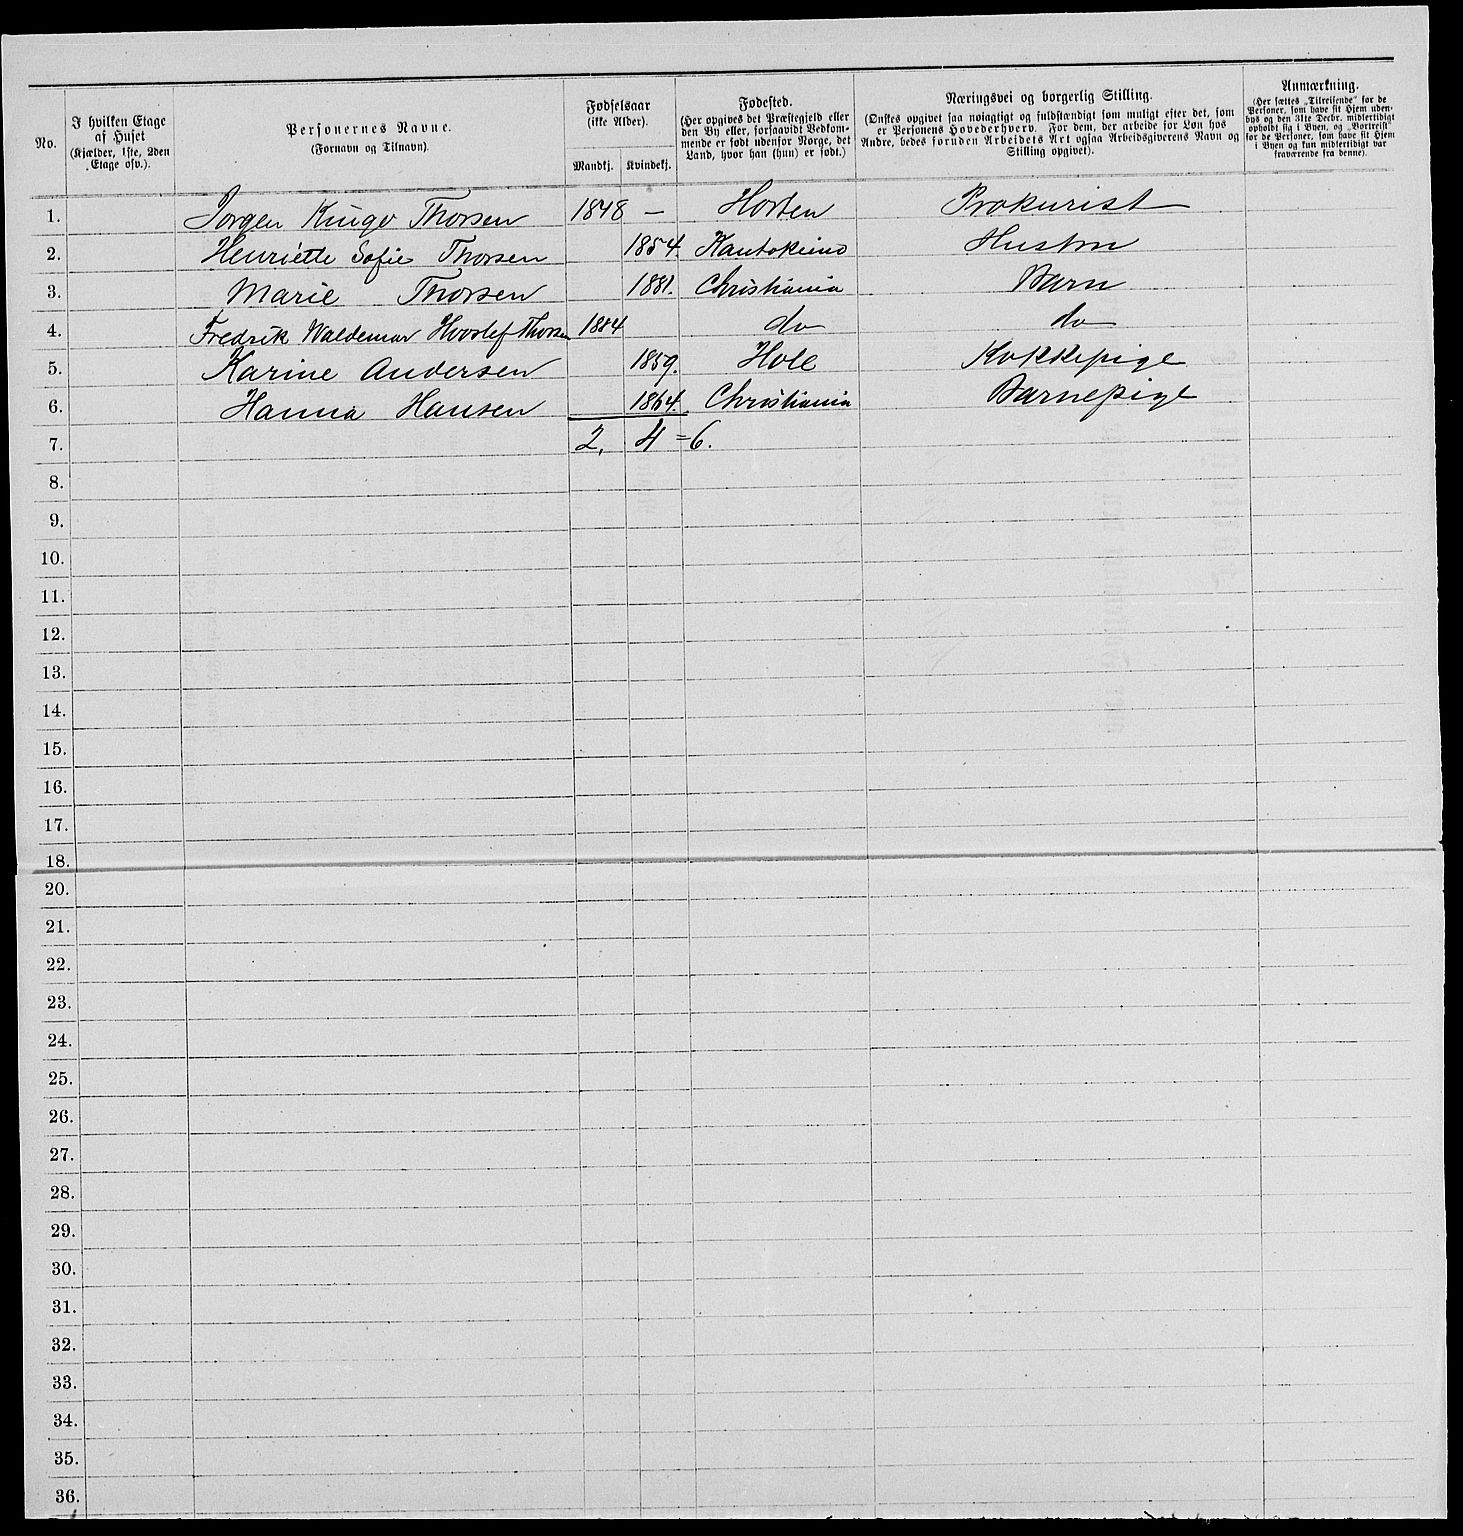 No.
I hvilken Etage af Huset (Kjælder, 1ste, 2den Etage osv.).
Personernes Navne. (Fornavn og Tilnavn).
Fødselsaar (ikke Alder).
Mandkj. Kvindekj.
Fødested. (Her opgives det Præstegjeld eller den By eller, forsaavidt Vedkommende er født udenfor Norge, det Land, hvor han (hun) er født.)
Næringsvei og borgerlig Stilling. (Ønskes opgivet saa nøiagtigt og fuldstændigt som muligt efter det, som er Personens Hovederhverv. For dem, der arbeide for Løn hos Andre, bedes foruden Arbeidets Art ogsaa Arbeidsgiverens Navn og Stilling opgivet).
Anmærkning. (Her sættes „Tilreisende“ for de Personer, som have sit Hjem udenbys og den 31te Decbr. midlertidigt opholdt sig i Byen, og „Bortreist“ for de Personer, som have sit Hjem i Byen og kun midlertidigt var fraværende fra denne).
1. Jørgen Kingo Thorsen 1848 — Horten Prokurist
2. Henriette Sofie Thorsen 1854. Kautokeino Hustru
3. Marie Thorsen 1881. Christiania Barn
4. Fredrik Waldemar Thorsen 1884 do do
5. Karine Andersen 1859. Hole Kokkepige
6. Hanna Hansen 1864. Christiania Barnepige
7. 2. 4 = 6.
8.
9.
10.
11.
12.
13.
14.
15.
16.
17.
18.
20.
21.
22.
23.
24.
25.
26.
27.
28.
29.
30.
31.
32.
33.
34.
35.
36.